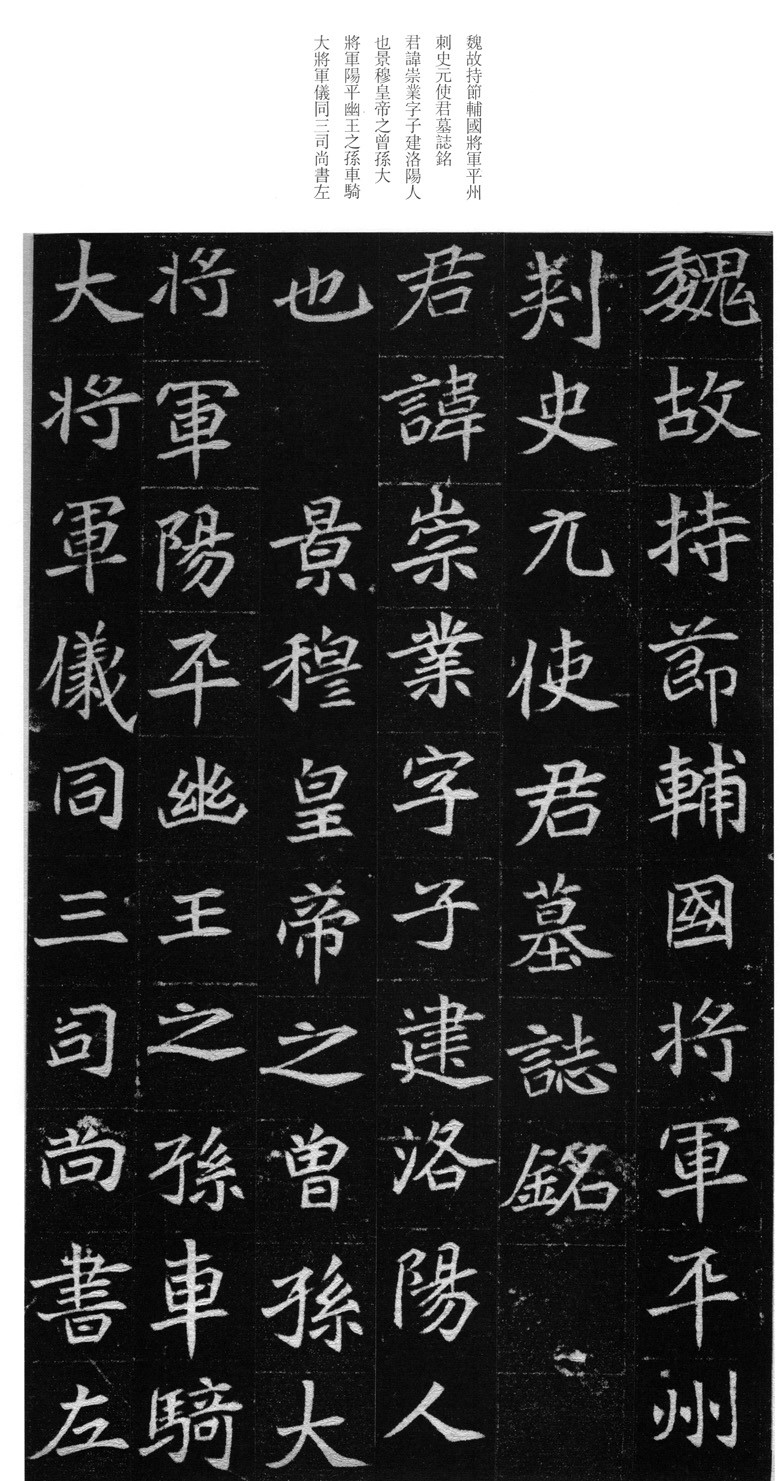 魏故持節輔國將軍平州
刺史元使君墓誌銘
君諱崇業字子建洛陽人
也景穆皇帝之曾孫大
將軍陽平幽王之孫車騎
大將軍儀同三司尚書左
魏故持節輔國将軍平州
刾史元使君墓誌銘
君諱崇業字子建洛陽人
也 景穆皇帝之曾孫大
将軍陽平幽王之孫車騎
大将軍儀同三司尚書左